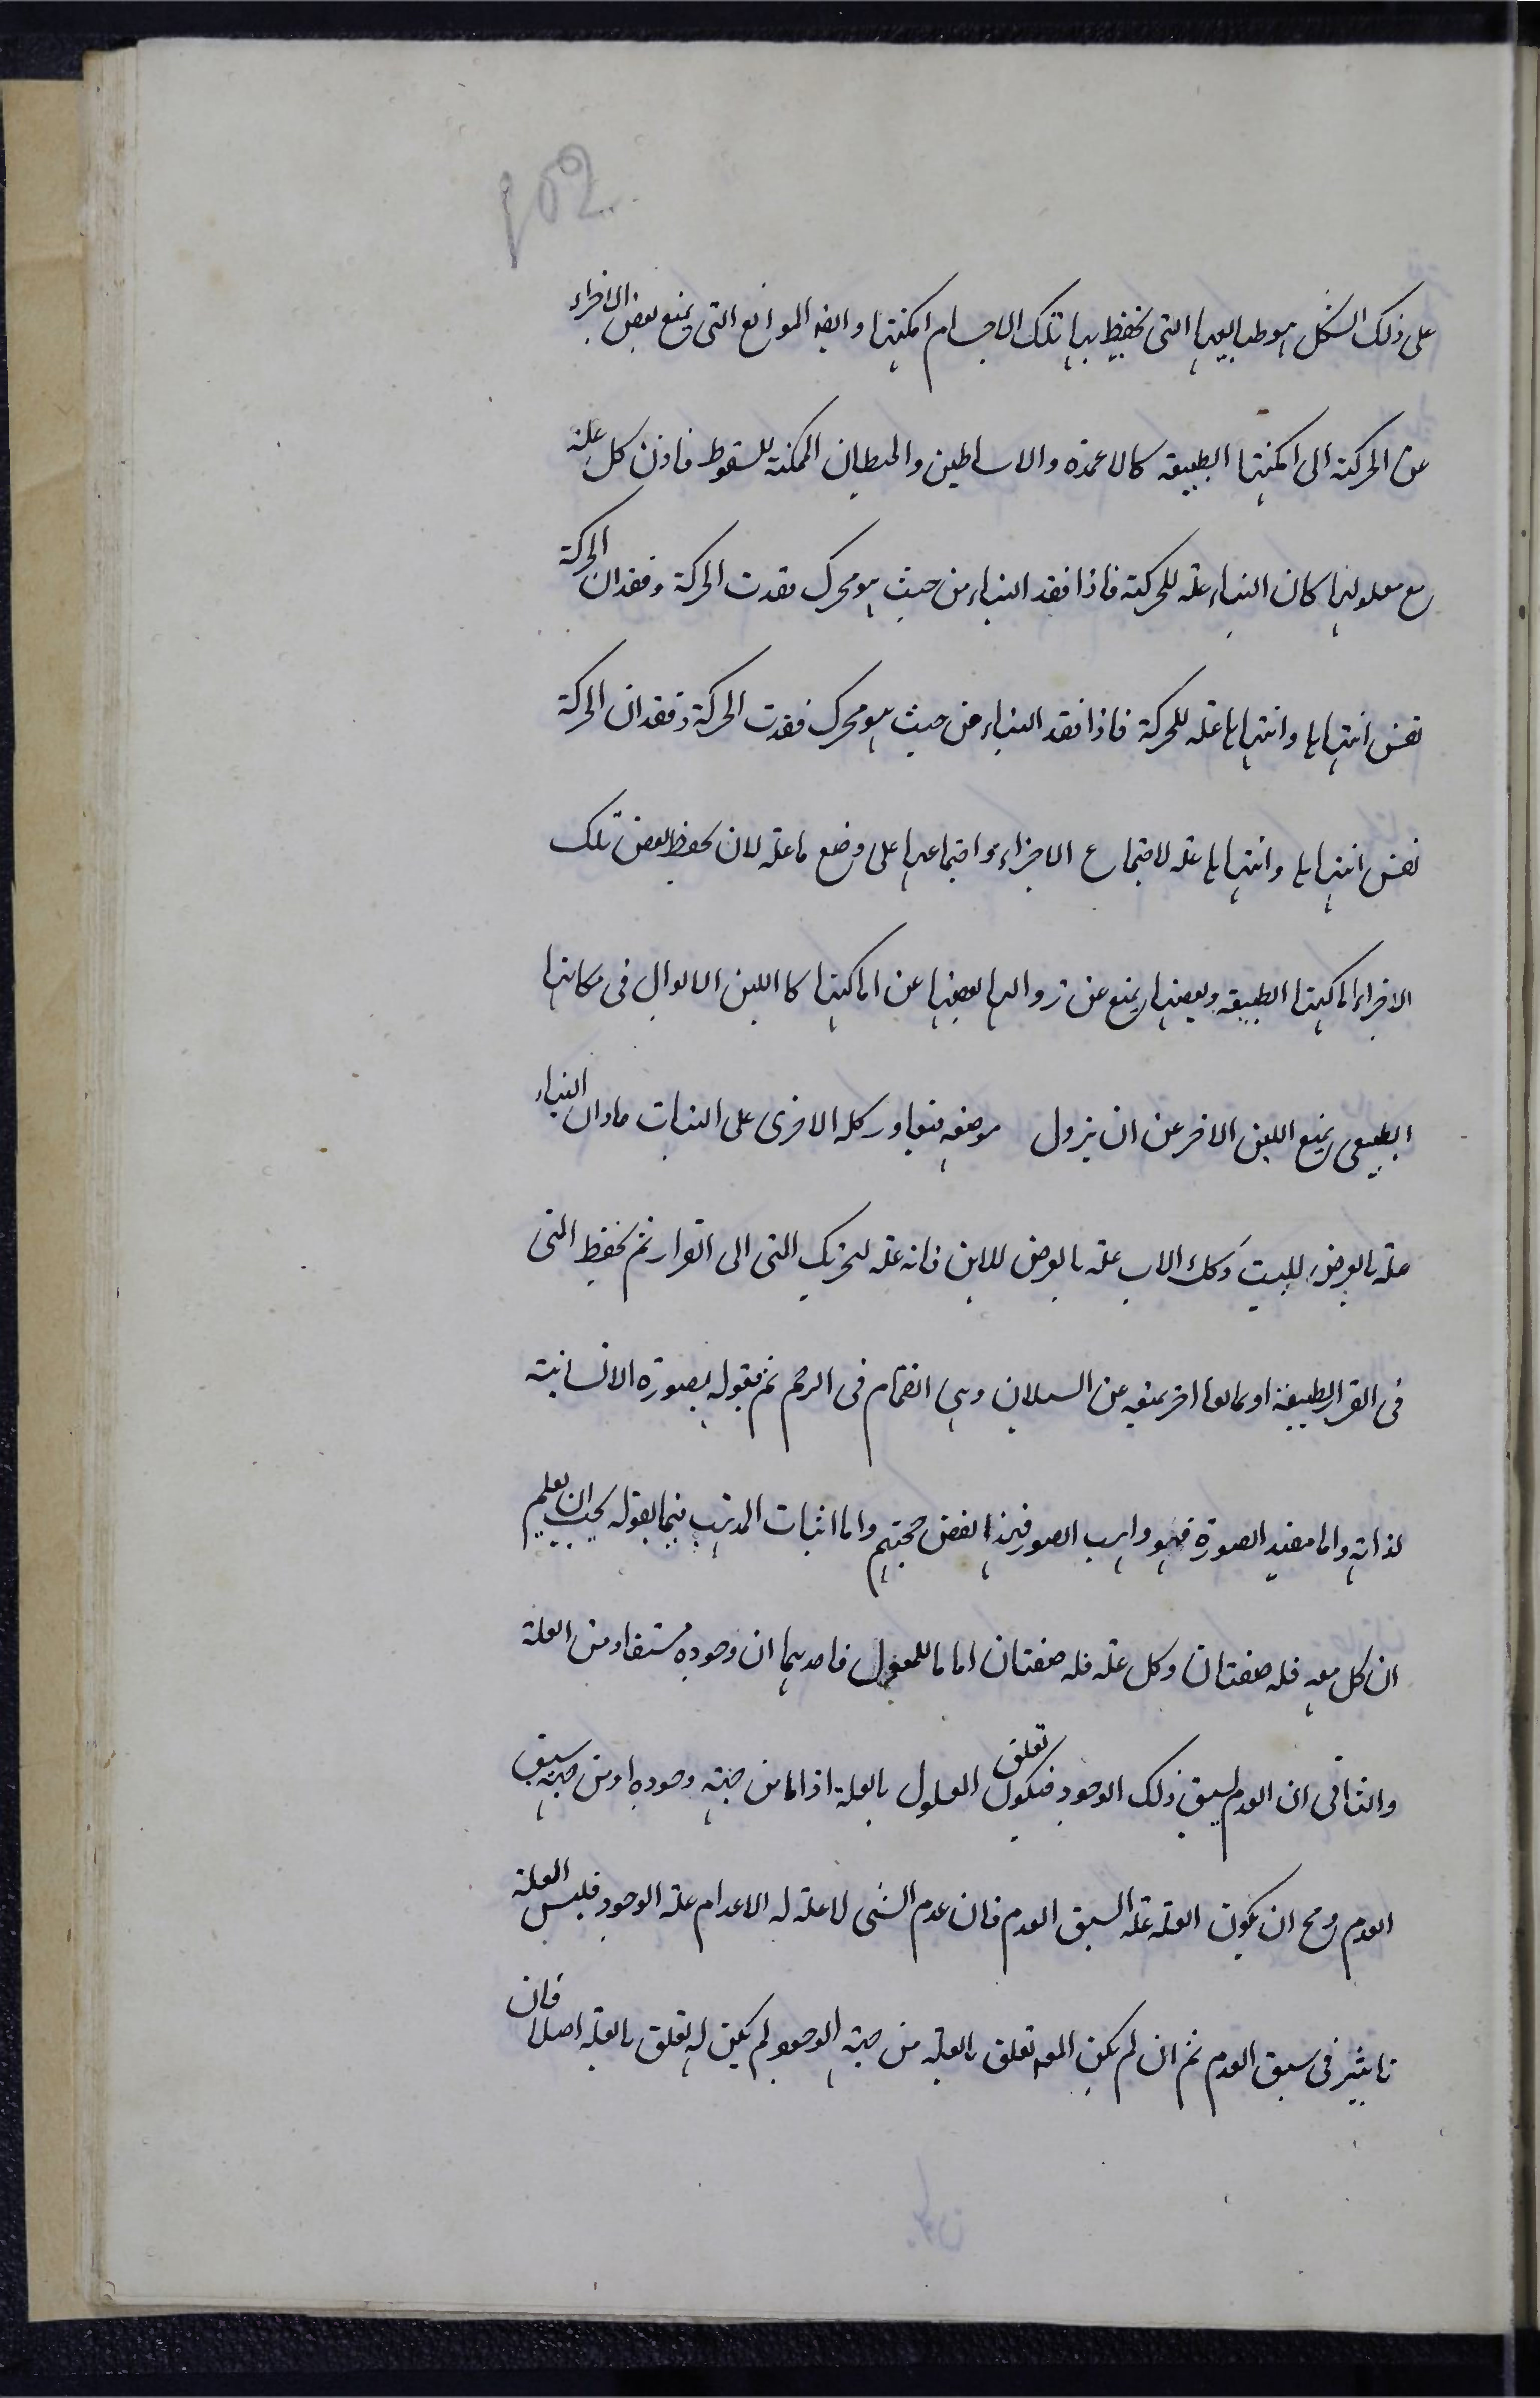 على ذلك الشكل هو طبايعها التى تحفظ بها تلك الاجسام امكنتها وايضه الموانع التى يمنع بعض الاجزاء
عن الحركة الى امكنتها الطبيعة كالاعمدة والاساطين والحيطان الممكنة للسقوط فاذن كل علة
مع معلولها كان البناء علة للحركة فاذا فقد البناء من حيث هو محرك فقدت الحركة وفقدان الحركة
نفس انتهاها وانتهاها علة للحركة فاذا فقد البناء من حيث هو محرك فقدت الحركة وفقدان الحركة
نفس انتهاها وانتهاها علة لاجتماع الاجزاء واجتماعها على وضع ما علة لان يحفظ بعض تلك
الاجزاء اماكنها الطبيعة وبعضها يمنع عن زوالها بعضها عن اماكنها كاللبن الاول فى مكانها
الطبيعى يمنع اللبن الاخر عن ان يزول موضعه كله الاخرى على الثبات مادام البناء
علة بالعرض للبيت وكك الاب علة بالعرض للابن فانه علة لتحريك المنى الى القرار ثم يحفظ المنى
فى القرار الطبيعة او مانعا اخر يمنعه عن السيلان وهى انضمام فى الرحم ثم قبوله بصورة الانسانية
لذاته واما مفيد الصورة فهو واهب الصور فهذا نقض حجتهم واما اثبات المذهب فيما بقوله يجب ان يعلم
ان كل معه فله صفتان وكل علة فله صفتان اما ما للمعول فاحديهما ان وجوده مستفاد من العلة
والثانى ان العدم يسبق ذلك الوجود فيكون تعلق المعلول بالعلة اذ اما من جهته وجوده او من جهته سبق
العدم ومح ان يكون العلة علة السبق العدم فان عدم الشى لا علة له الا عدام علة الوجود فليس العلة
تاثير فى سبق العدم ثم ان لم يكن المعه تعلق بالعلة من جهته الوجود لم يكن له تعلق بالعلة اصلا فان